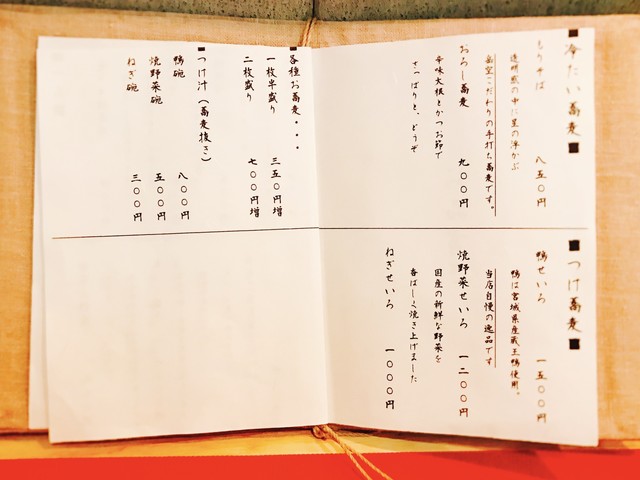 ■冷たい蕎麦■
もりそば 八五〇円
透明感の中に星の浮かぶ
岳空こだわりの手打ち蕎麦です。
おろし蕎麦 九〇〇円
辛味大根とかつお節で
さっぱりと、どうぞ
■つけ蕎麦■
鴨せいろ 一五〇〇円
鴨は宮城県産蔵王鴨使用。
当店自慢の逸品です
焼野菜せいろ 一二〇〇円
国産の新鮮な野菜を
香ばしく焼き上げました
ねぎせいろ 一〇〇〇円
■各種お蕎麦・・・
一枚半盛り 三五〇円増
二枚盛り 七〇〇円増
■つけ汁(蕎麦抜き)
鴨碗 八〇〇円
焼野菜碗 五〇〇円
ねぎ碗 三〇〇円